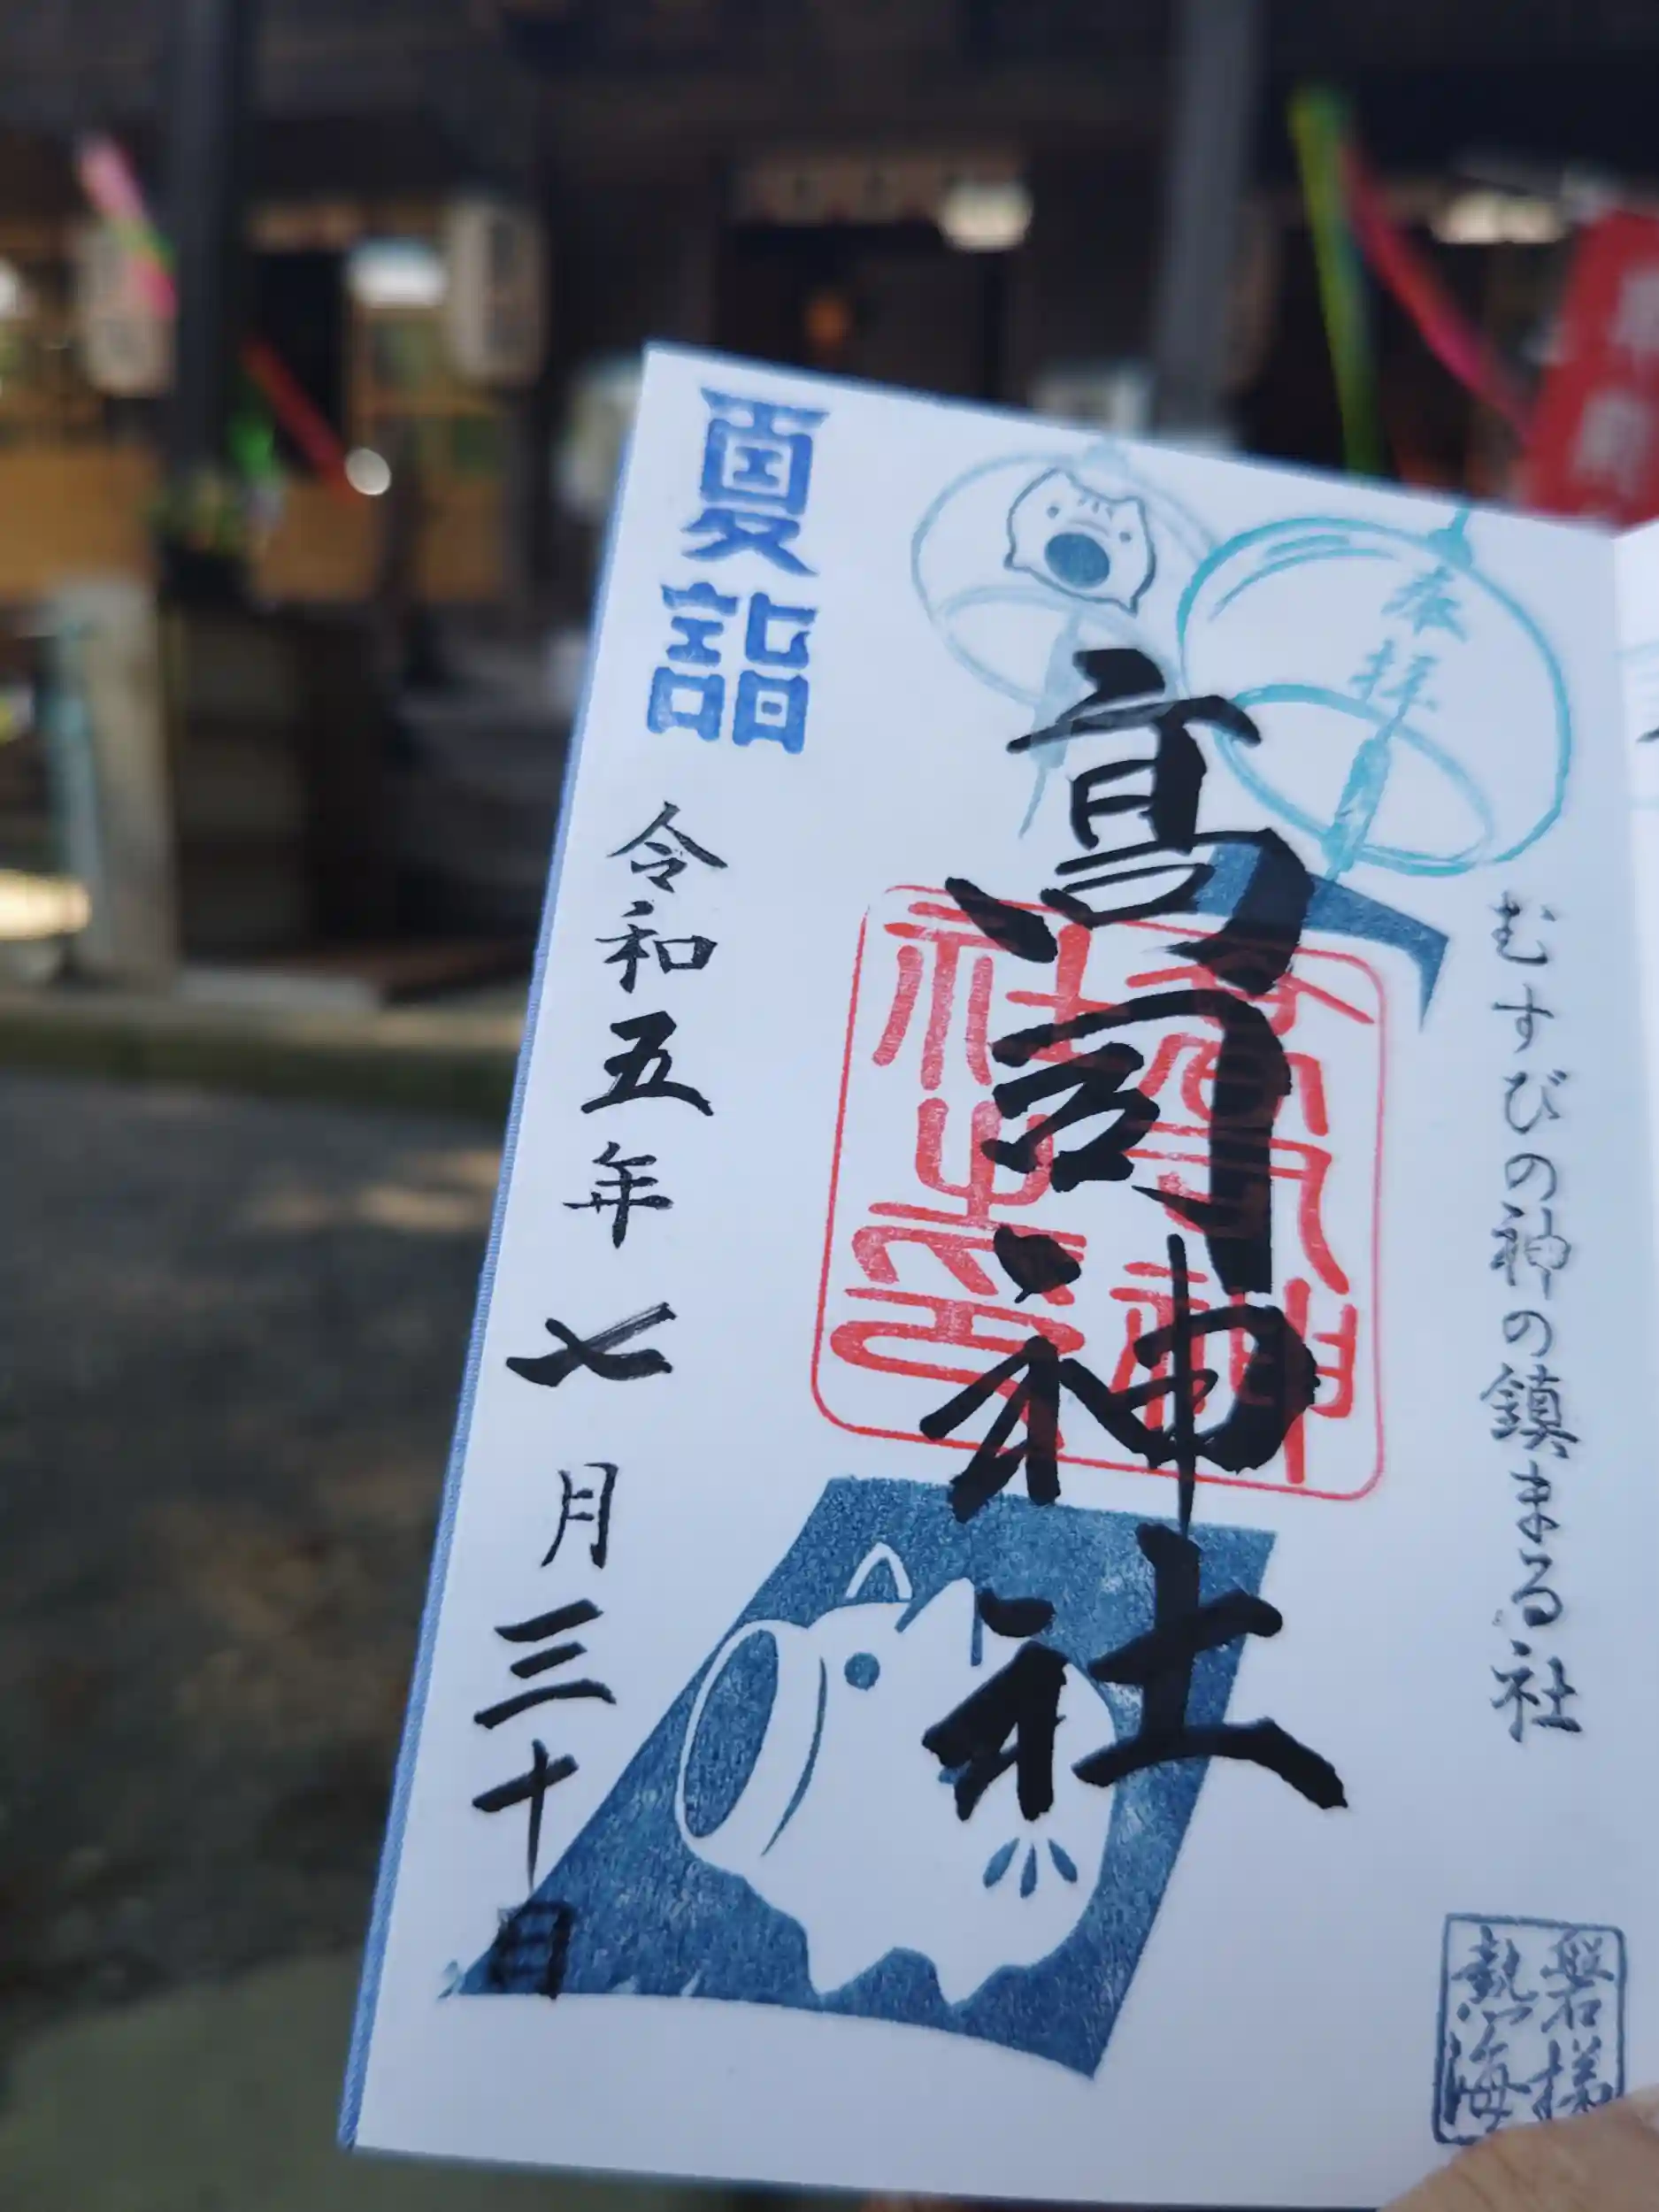 奉拝
むすびの神の鎮まる社
磐梯
熱海
高司神社
高司神
社之印
夏詣
令和五年七月三十日